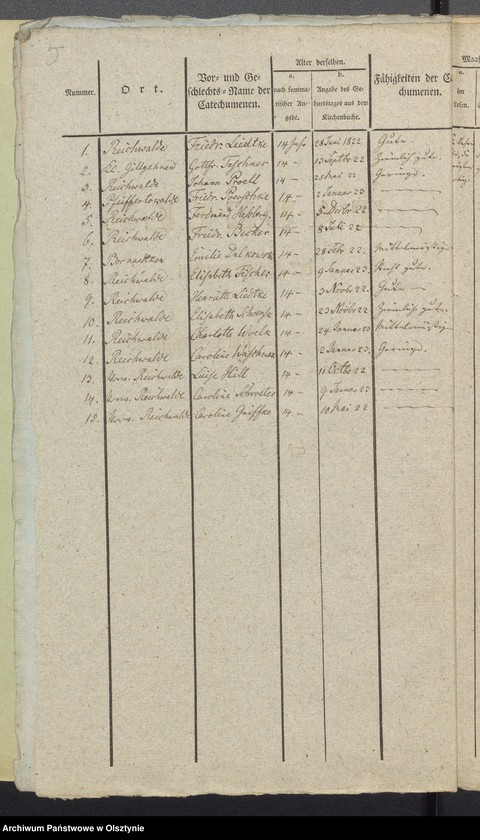 5
Nummer. Ort. Vor- und Geschlechts-Name der Catechumenen. Alter derselben. a. nach summarischer Angabe. b. Angabe des Geburtstages aus dem Kirchenbuche. Fähigkeiten der Catechumenen.
1. Reichwalde Friedr: Liedtke 14 Jahr 28 Juni 1822 Gute
2. Kl. Gillgehnen Gottfr. 14 — 13 Septbr 22 Ziemlich gute.
3. Reichwalde Johann Proell 14 — 25 Mai 22 Geringe.
4. Friedr. 14 — 2 Januar 23
5. Reichwalde Ferdinand 14 — 5 Decbr 22
6. Reichwalde Friedr. Becker 14 — 8 Juli 22
7. Emilie 14 — 28 Febr. 22 Mittelmäßig
8. Reichwalde Elisabeth Fischer 14 — 9 Januar 23. Recht gute.
9. Reichwalde Henriette Liedtke 14 — 3 Novbr. 22 Gute
10. Reichwalde Elisabeth 14 — 23 Novbr 22 Ziemlich gute.
11. Reichwalde Charlotte 14 — 24 Januar 23 Mittelmäßig
12. Reichwalde Caroline 14 — 2 Januar 23. Geringe.
13. Reichwalde Luise Hill 14 — 11 Octbr 22
14. Reichwalde Caroline Schroeter 14 — 9 Januar 23
15. Reichwalde Caroline 14 — 10 Mai 22
Archiwum Państwowe w Olsztynie